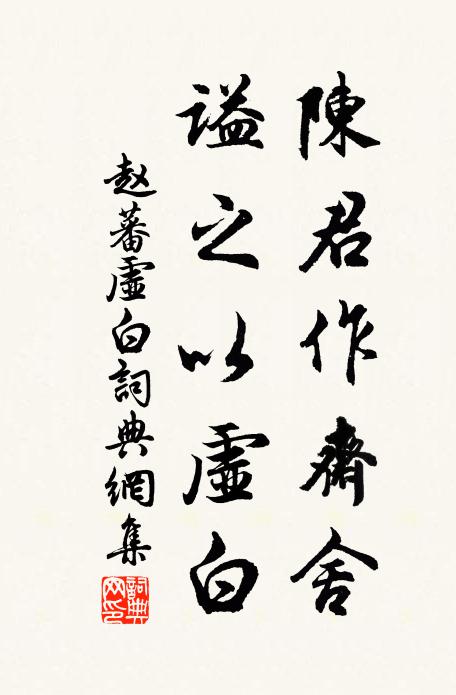 陳君作齋舍
謚之以虛白
赵蕃虛白詞典網集
詞典網印